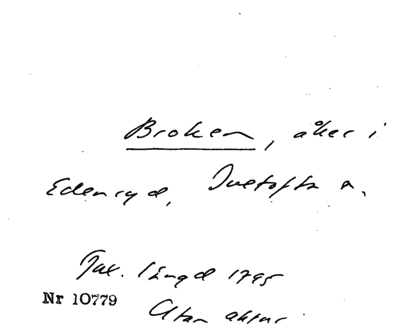 Broken, åker i
Edenryd, Ivetofta s.
Tax. längd 1795
Nr 10779
Utan aktnr.